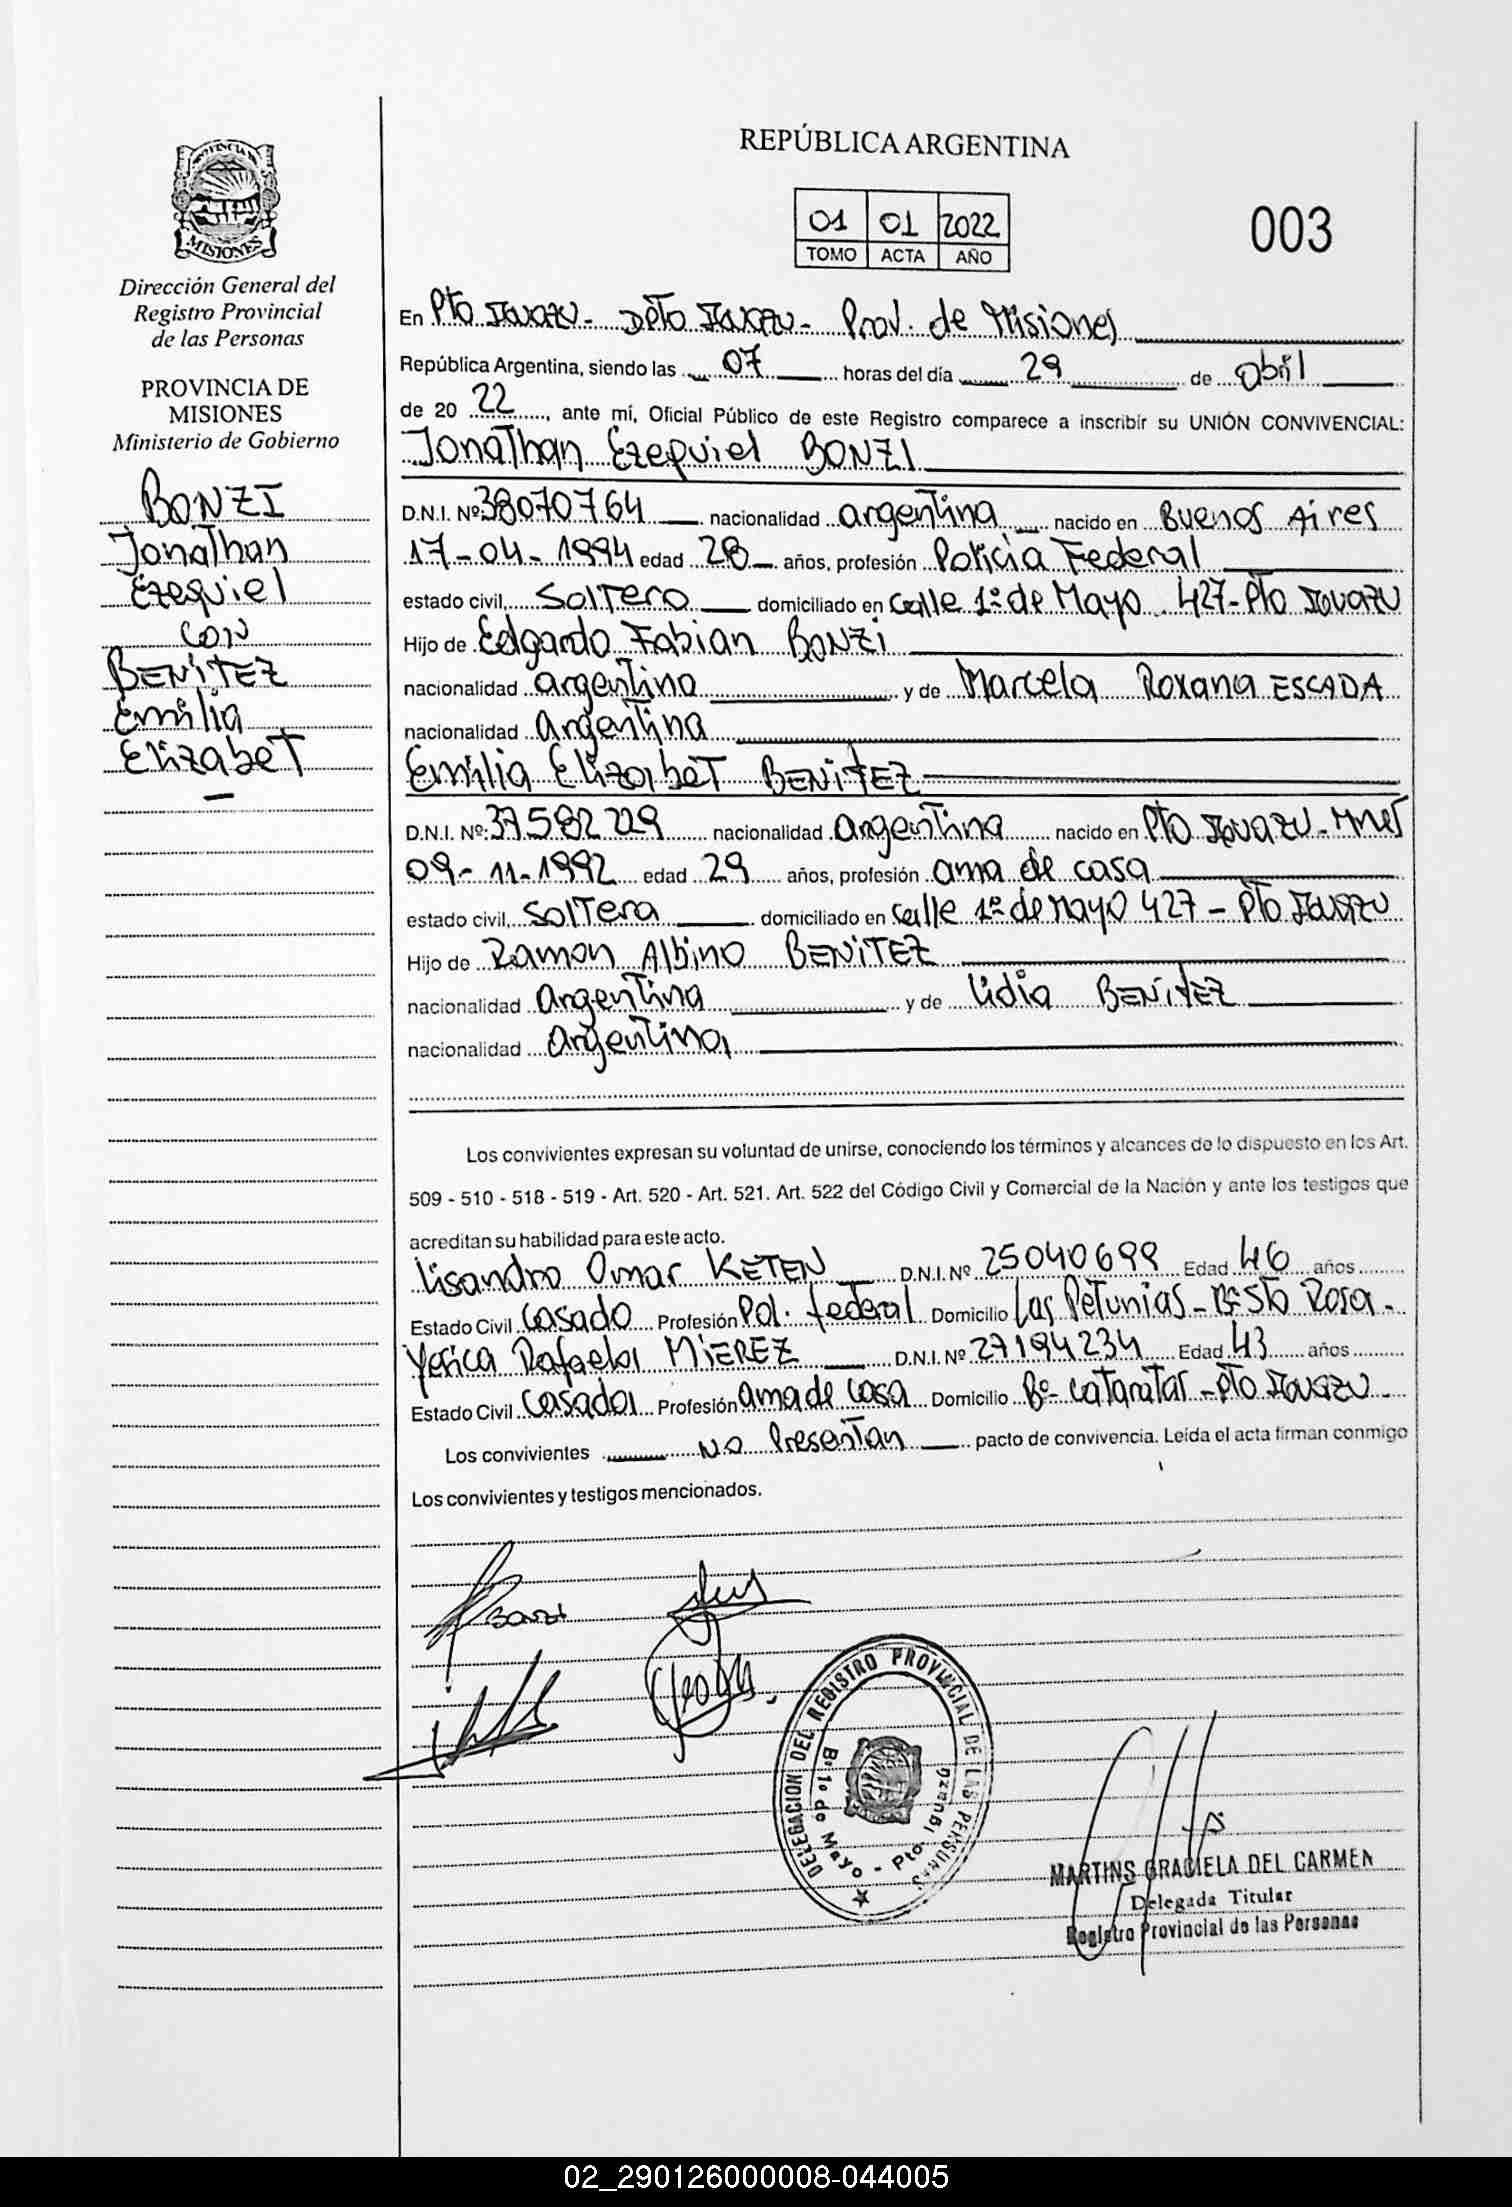 REPÚBLICA ARGENTINA
01 01 2022
TOMO ACTA AÑO
003
PROVINCIA
MISIONES
Dirección General del
Registro Provincial
de las Personas
PROVINCIA DE
MISIONES
Ministerio de Gobierno
BONZI
Jonathan
Ezequiel
CON
BENITEZ
Emilia
Elizabet
En Pto Iguazu - Dpto Iguazu - Prov. de Misiones
República Argentina, siendo las 07 horas del día 29 de abril
de 20 22, ante mí, Oficial Público de este Registro comparece a inscribir su UNIÓN CONVIVENCIAL:
Jonathan Ezequiel BONZI
D.N.I. Nº 38070764 nacionalidad argentina nacido en Buenos Aires
17-04-1994 edad 28 años, profesión Policia Federal
estado civil, soltero domiciliado en calle 1º de Mayo 427 - Pto Iguazu
Hijo de Edgardo Fabian BONZI
nacionalidad argentina y de Marcela Roxana ESCADA
nacionalidad argentina
Emilia Elizabet BENITEZ
D.N.I. Nº: 37.582.229 nacionalidad argentina nacido en Pto Iguazu - Mnes
09-11-1992 edad 29 años, profesión ama de casa
estado civil, soltera domiciliado en calle 1º de Mayo 427 - Pto Iguazu
Hijo de Ramon Albino BENITEZ
nacionalidad argentina y de Lidia BENITEZ
nacionalidad argentina
Los convivientes expresan su voluntad de unirse, conociendo los términos y alcances de lo dispuesto en los Art.
509 - 510 - 518 - 519 - Art. 520 - Art. 521. Art. 522 del Código Civil y Comercial de la Nación y ante los testigos que
acreditan su habilidad para este acto.
Lisandro Omar KETEN D.N.I. Nº 25040699 Edad 46 años
Estado Civil Casado Profesión Pol. Federal Domicilio Las Petunias - Bº Sta Rosa -
Yesica Rafaela MIEREZ D.N.I. Nº 27194234 Edad 43 años
Estado Civil Casada Profesión ama de casa Domicilio Bº Cataratas - Pto Iguazu -
Los convivientes No Presentan pacto de convivencia. Leída el acta firman conmigo
Los convivientes y testigos mencionados.
Bonzi
DELEGACION DEL REGISTRO PROVINCIAL DE LAS PERSONAS
Bº 1º de Mayo - Pto. Iguazú
MARTINS GRACIELA DEL CARMEN
Delegada Titular
Registro Provincial de las Personas
02_290126000008-044005